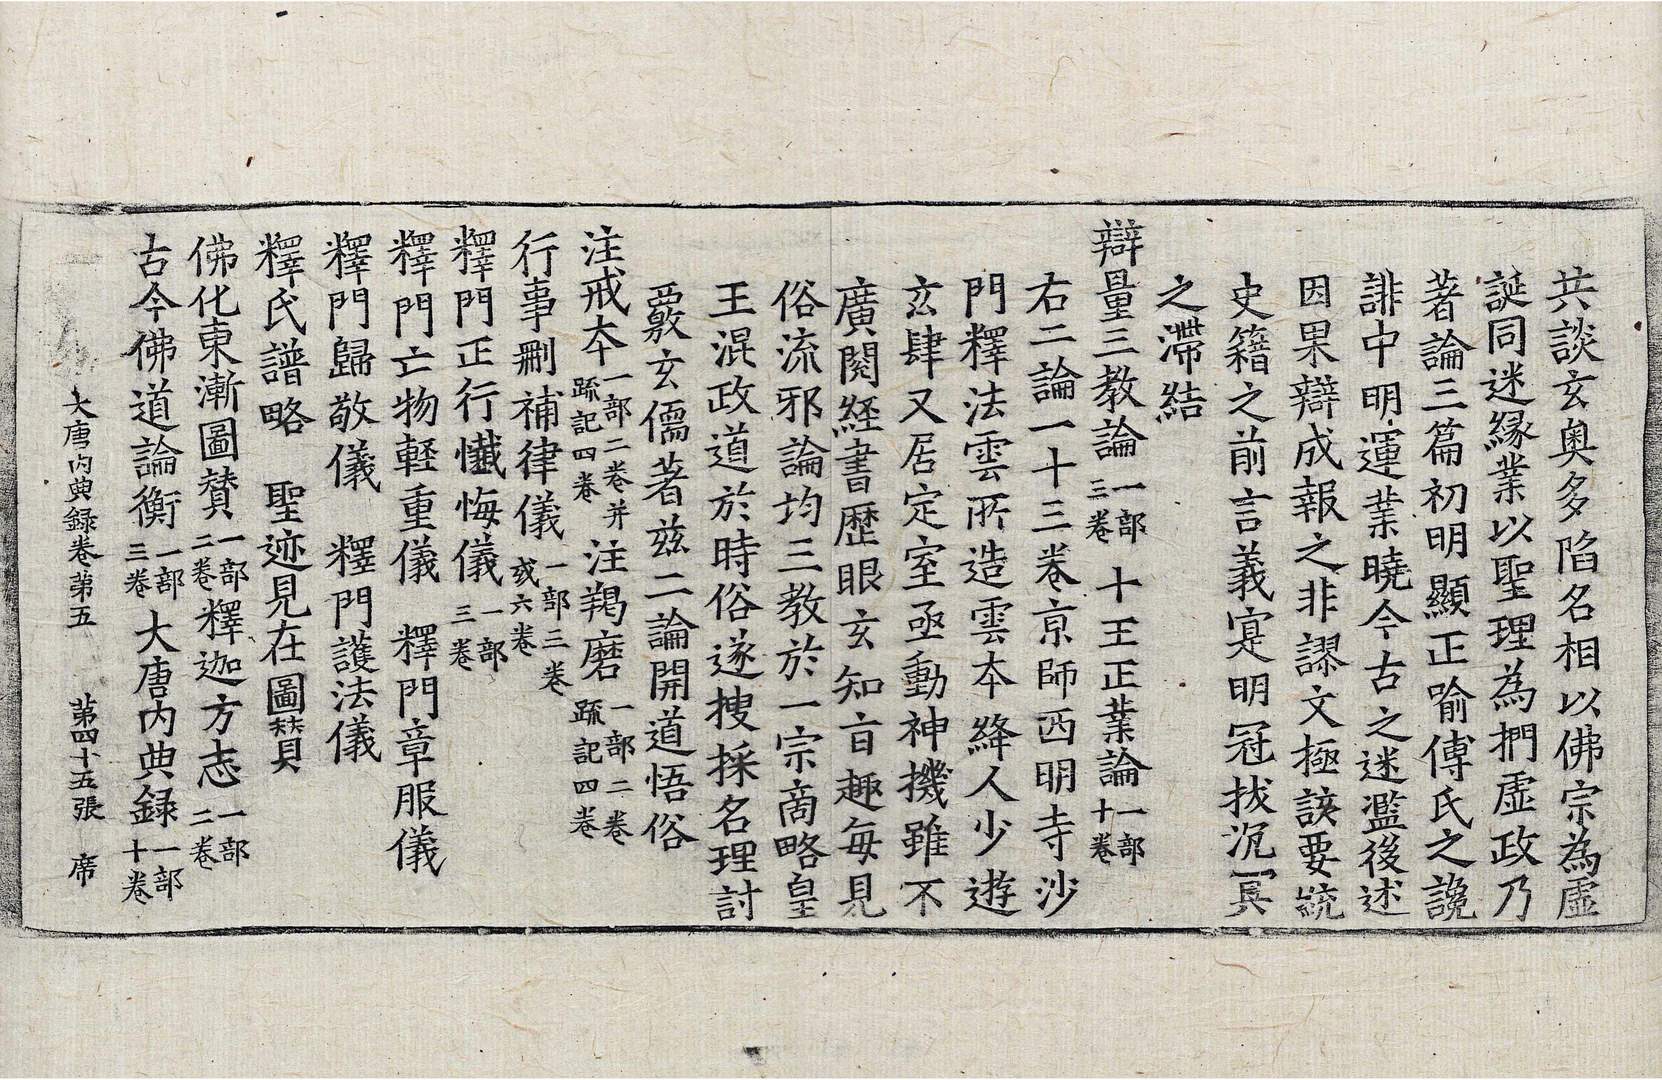 共談玄奧多陷名相以佛宗為虛
誕同迷緣業以聖理為捫虛政乃
著論三篇初明顯正喻傅氏之讒
誹中明運業曉今古之迷濫後述
因果辯成報之非謬文極該要統
史籍之前言義寔明冠拔沉冥
之滯結
辯量三教論一部三卷 十王正業論一部十卷
右二論一十三卷京師西明寺沙
門釋法雲所造雲本絳人少遊
玄肆又居定室亟動神機雖不
廣閱經書歷眼玄知盲趣每見
俗流邪論均三教於一宗商略皇
王混政道於時俗遂搜採名理討
覈玄儒著茲二論開道悟俗
注戒本一部二卷并疏記四卷 注羯磨一部二卷疏記四卷
行事刪補律儀一部三卷或六卷
釋門正行懺悔儀一部三卷
釋門亡物輕重儀 釋門章服儀
釋門歸敬儀 釋門護法儀
釋氏譜略 聖迹見在圖贊
佛化東漸圖贊一部二卷 釋迦方志一部二卷
古今佛道論衡一部三卷 大唐內典錄一部十卷
大唐內典錄卷第五 第四十五張 席